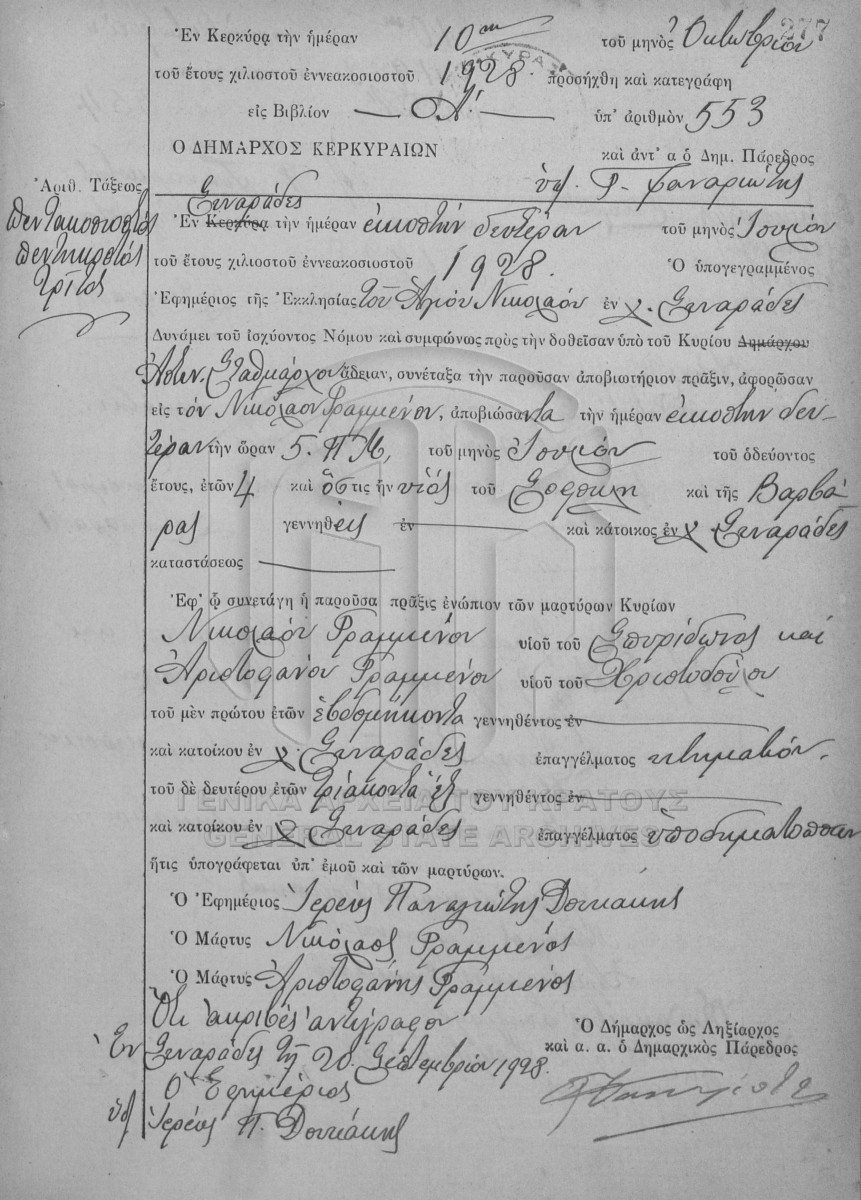 277
Ἐν Κερκύρᾳ τὴν ἡμέραν 10ην τοῦ μηνὸς Ὀκτωβρίου
τοῦ ἔτους χιλιοστοῦ ἐννεακοσιοστοῦ 1928. προσήχθη καὶ κατεγράφη
εἰς Βιβλίον — Α΄ — ὑπ' ἀριθμὸν 553
Ο ΔΗΜΑΡΧΟΣ ΚΕΡΚΥΡΑΙΩΝ καὶ ἀντ' α ὁ Δημ. Πάρεδρος
Ἀριθ. Τάξεως
πεντακοσιοστός
πεντηκοστός
τρίτος
Σιναράδες
Ἐν Κερκύρᾳ τὴν ἡμέραν εἰκοστὴν δευτέραν τοῦ μηνὸς Ἰουλίου
τοῦ ἔτους χιλιοστοῦ ἐννεακοσιοστοῦ 1928. Ὁ ὑπογεγραμμένος
Ἐφημέριος τῆς Ἐκκλησίας τοῦ Ἁγίου Νικολάου ἐν χ. Σιναράδες
Δυνάμει τοῦ ἰσχύοντος Νόμου καὶ συμφώνως πρὸς τὴν δοθεῖσαν ὑπὸ τοῦ Κυρίου Δημάρχου
Ἀστυν. Σταθμάρχου ἄδειαν, συνέταξα τὴν παροῦσαν ἀποβιωτήριον πρᾶξιν, ἀφορῶσαν
εἰς τὸν Νικόλαον Γραμμένον, ἀποβιώσαντα τὴν ἡμέραν εἰκοστὴν δευ-
τέραν τὴν ὥραν 5. Π Μ. τοῦ μηνὸς Ἰουλίου τοῦ ὁδεύοντος
ἔτους, ἐτῶν 4 καὶ ὅστις ἦν υἱὸς τοῦ καὶ τῆς Βαρβά
ρας γεννηθεὶς ἐν — καὶ κάτοικος ἐν χ Σιναράδες
καταστάσεως —
Ἐφ' ᾧ συνετάγη ἡ παροῦσα πρᾶξις ἐνώπιον τῶν μαρτύρων Κυρίων
Νικολάου Γραμμένου υἱοῦ τοῦ Σπυρίδωνος καὶ
Ἀριστοφάνου Γραμμένου υἱοῦ τοῦ Χριστοδούλου
τοῦ μὲν πρώτου ἐτῶν ἑβδομήκοντα γεννηθέντος ἐν —
καὶ κατοίκου ἐν χ. Σιναράδες ἐπαγγέλματος κτηματίου.
τοῦ δὲ δευτέρου ἐτῶν τριάκοντα ἓξ γεννηθέντος ἐν —
καὶ κατοίκου ἐν χ Σιναράδες ἐπαγγέλματος
ΓΕΝΙΚΑ ΑΡΧΕΙΑ ΤΟΥ ΚΡΑΤΟΥΣ
GENERAL STATE ARCHIVES
ἥτις ὑπογράφεται ὑπ' ἐμοῦ καὶ τῶν μαρτύρων.
Ὁ Ἐφημέριος Ἱερεὺς Παναγιώτης Δουκάκης
Ὁ Μάρτυς Νικόλαος Γραμμένος
Ὁ Μάρτυς Ἀριστοφάνης Γραμμένος
Ὅτι ἀκριβὲς ἀντίγραφον
Ἐν Σιναράδες τῇ 20 Σεπτεμβρίου 1928.
Ὁ Ἐφημέριος
Ἱερεὺς Π. Δουκάκης
Ὁ Δήμαρχος ὡς Ληξίαρχος
καὶ α. α. ὁ Δημαρχικὸς Πάρεδρος